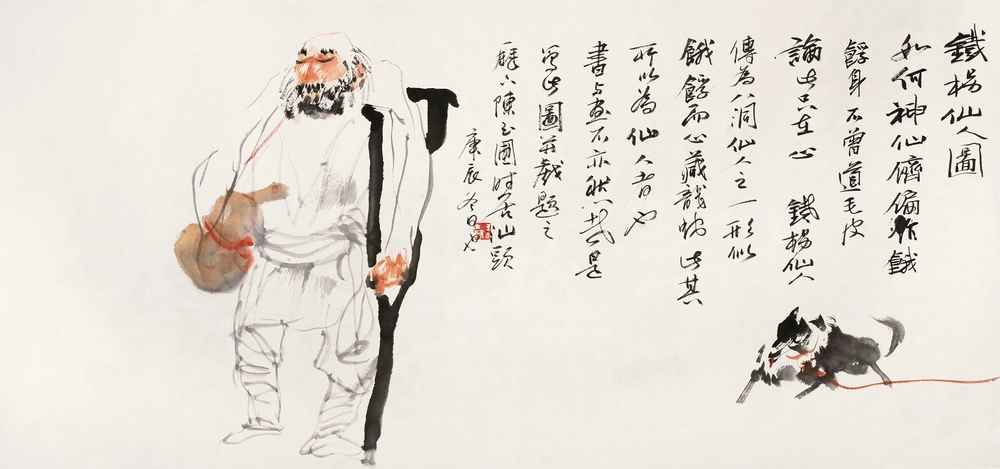 鐵枴仙人圖
如何神仙儕偏作餓
餓身 不曾道毛皮
論此只在心 鐵枴仙人
傳為八洞仙人之一形似
餓殍而心藏
此其
所以為仙人者也
書與畫不亦然哉是
寫此圖並戲題之
陳玉圃時居山
庚辰冬日